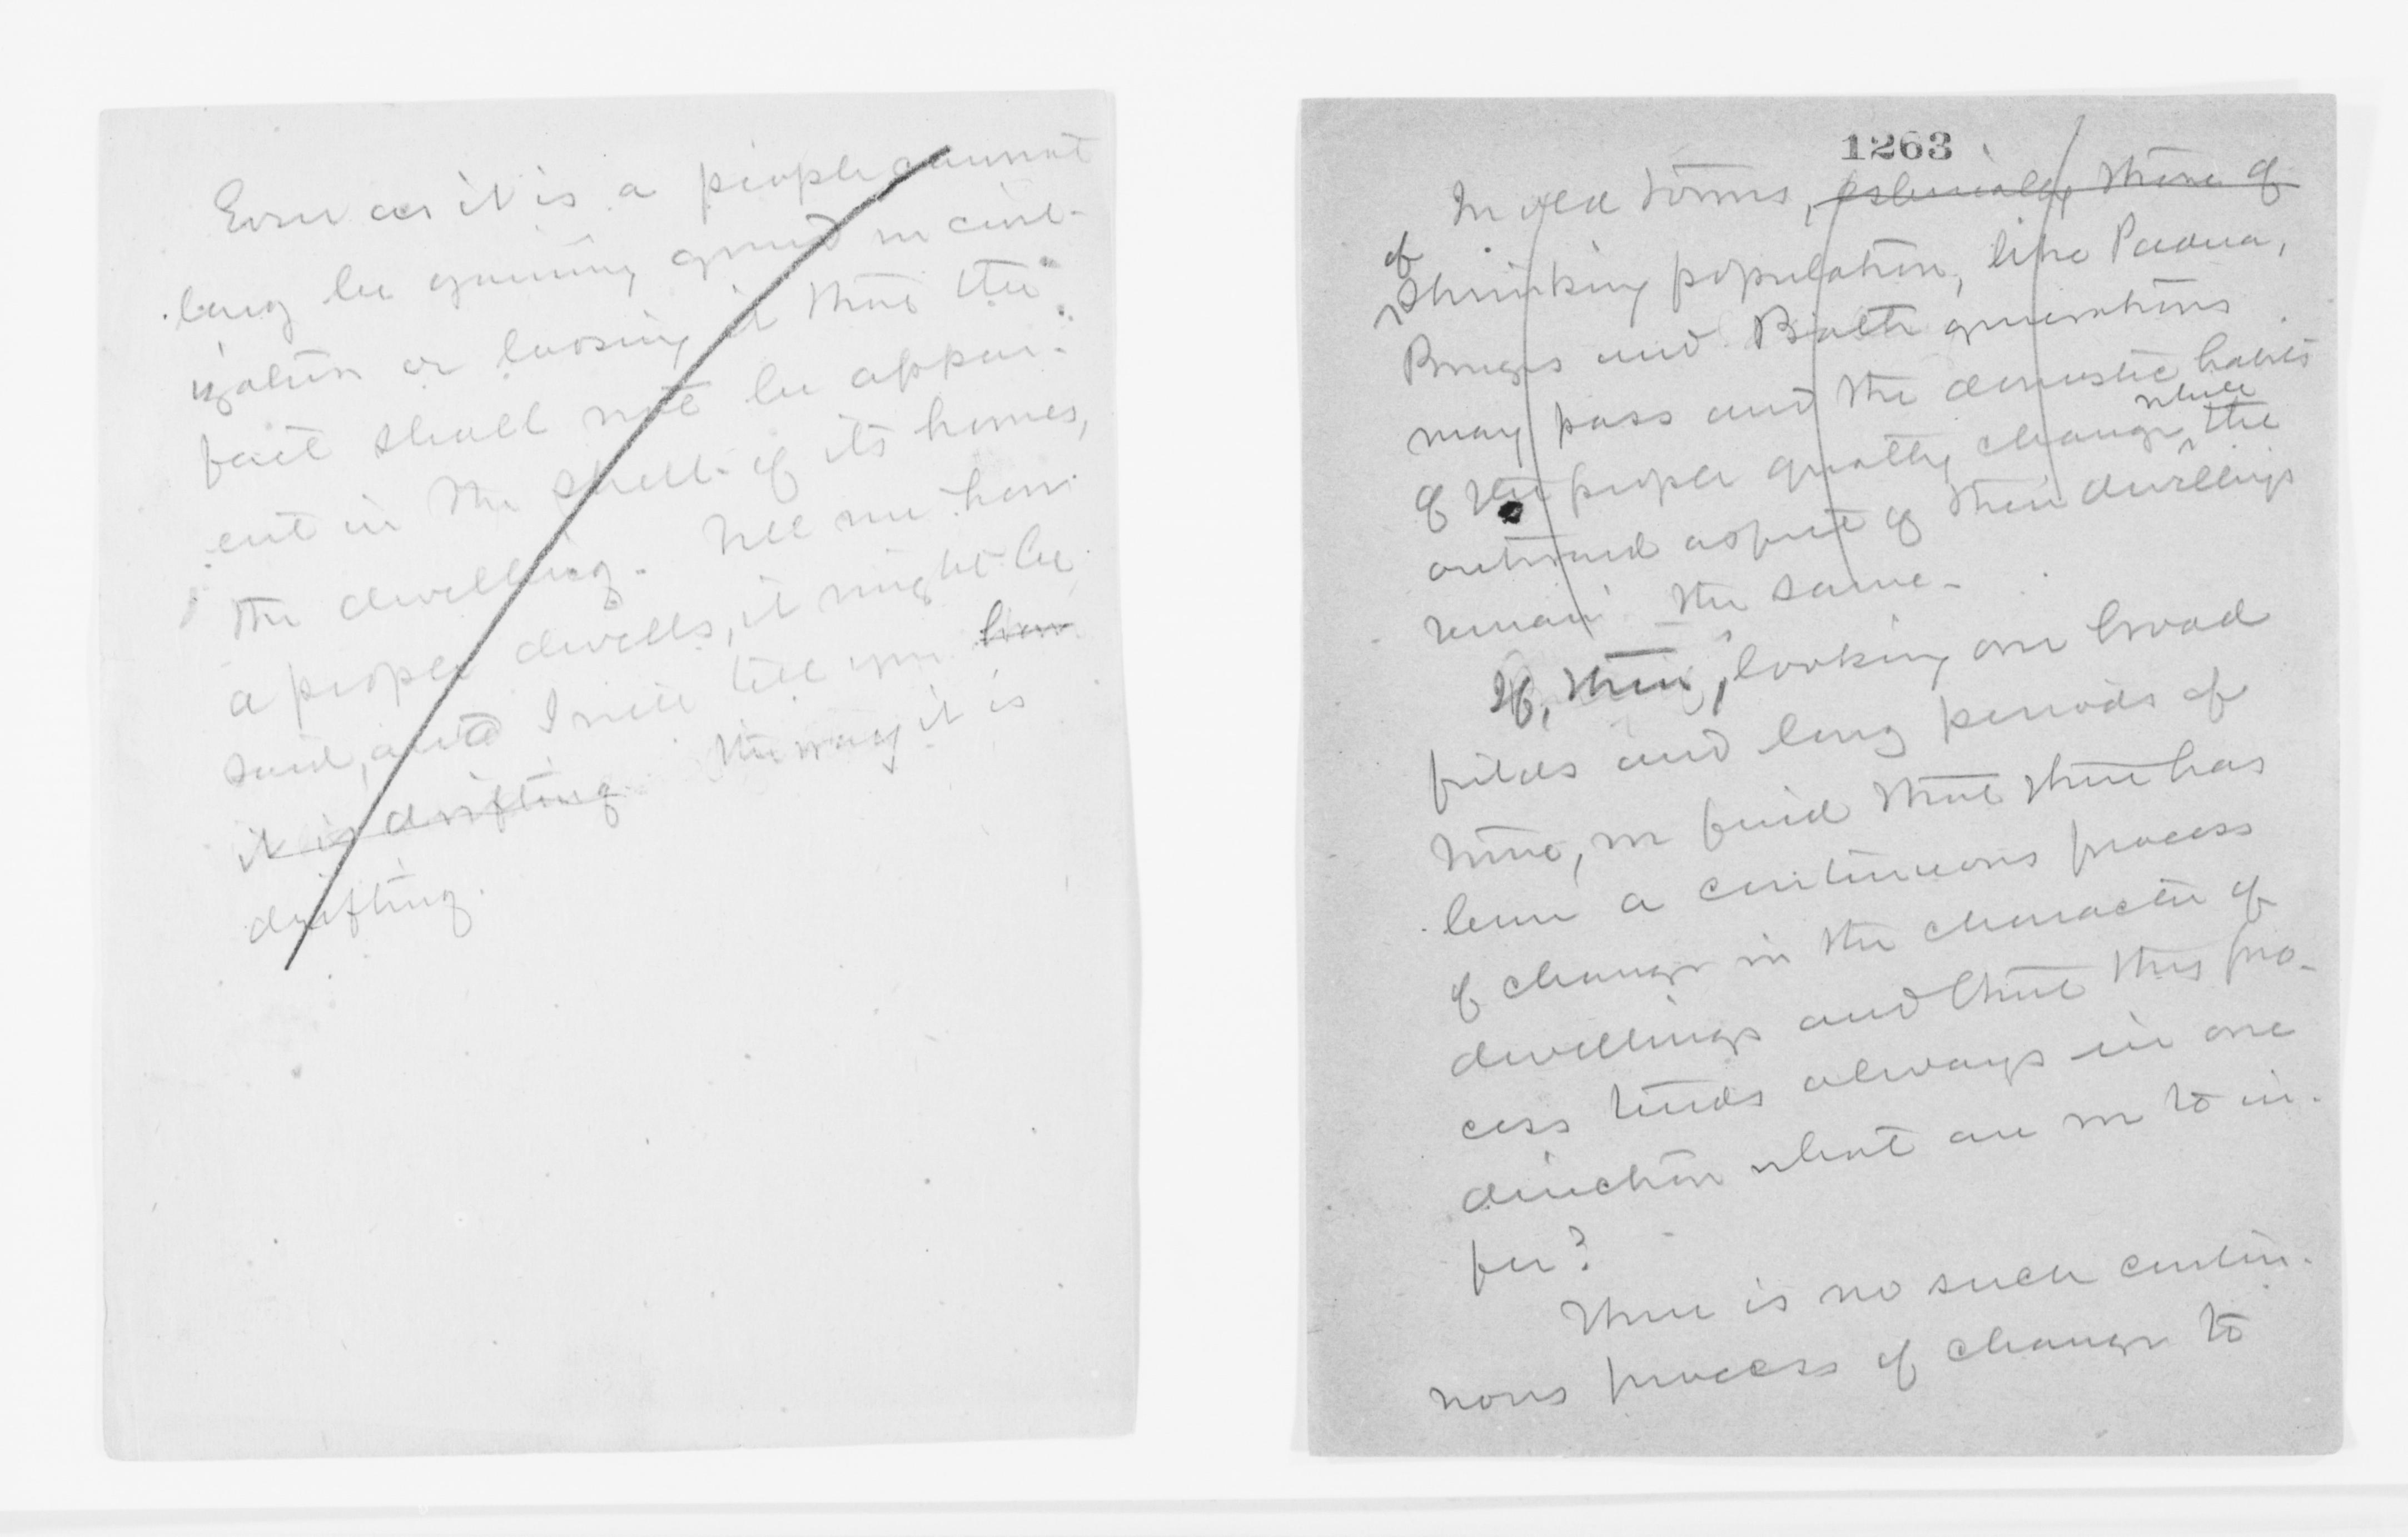 Even as it is a people cannot
long be gaining ground in civil-
ization or loosing it that the
fact shall not be appar-
ent in the shell of its homes,
the dwelling. Tell me how
a people dwells, it might be
said, and I will tell you how
it is drifting the way it is
drifting.
1263
In old towns, especially those of
of
shrinking population, like Padua,
Bruges and Bath generations
may pass and the domestic habits
of the people greatly change while the
outward aspect of their dwellings
remain the same.
If, then, looking on broad
fields and long periods of
time, we find that there has
been a continuous process
of change in the character of
dwellings and that this pro-
cess tends always in one
direction what are we to in-
fer?
There is no such contin-
uous process of change to